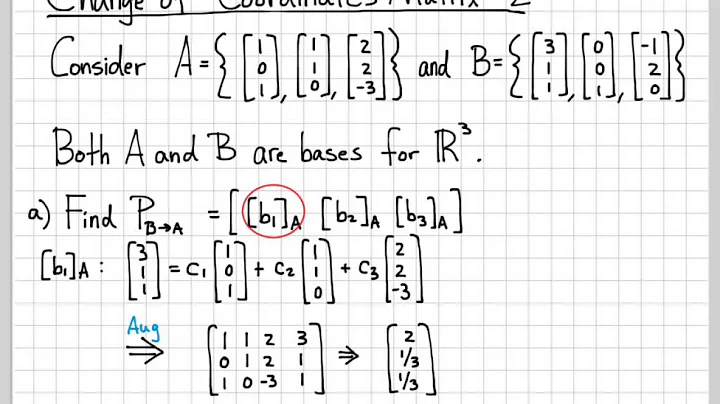 Change of Coordinates Matrix 2
Consider A = { [1 0 1], [1 1 0], [2 2 -3] } and B = { [3 1 1], [0 0 1], [-1 2 0] }
Both A and B are bases for ℝ³.
a) Find P_{B→A} = [ [b₁]_A [b₂]_A [b₃]_A ]
[b₁]_A : [3 1 1] = c₁ [1 0 1] + c₂ [1 1 0] + c₃ [2 2 -3]
Aug
⇒ [1 1 2 3
0 1 2 1
1 0 -3 1] ⇒ [2 1/3 1/3]